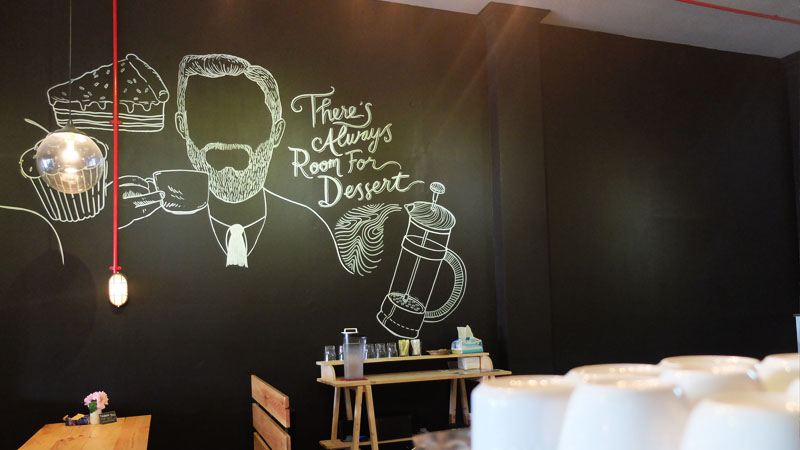 There's
Always
Room For
Dessert